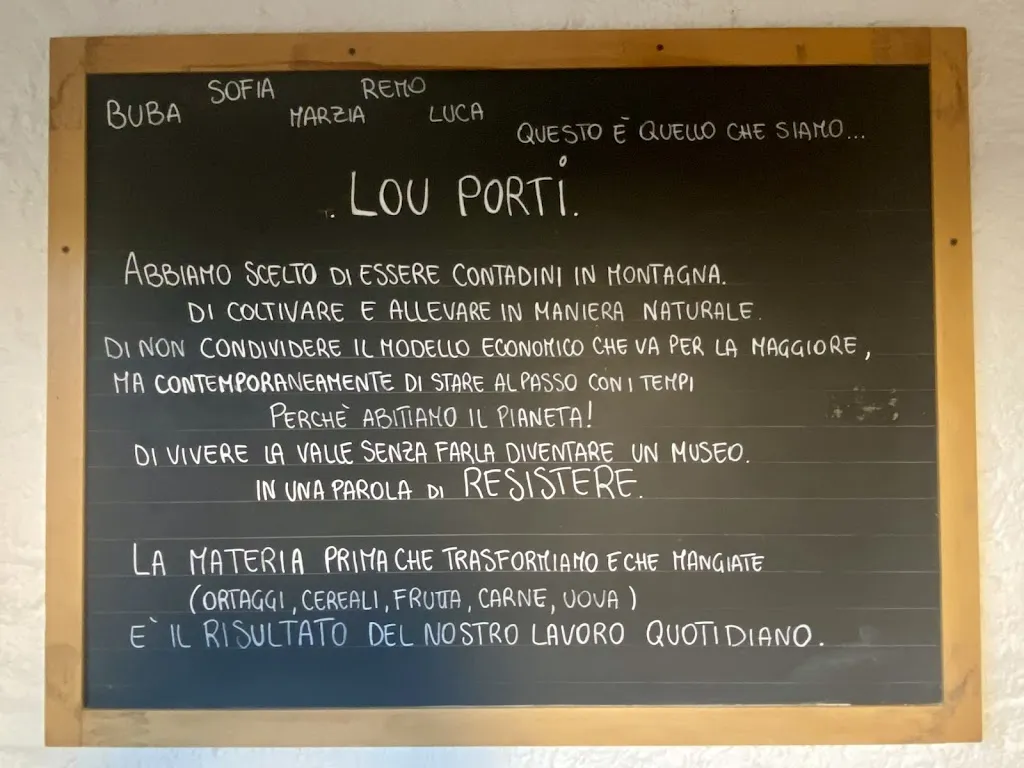 SOFIA REMO
BUBA MARZIA LUCA
QUESTO È QUELLO CHE SIAMO...
. LOU PORTi.
ABBIAMO SCELTO DI ESSERE CONTADINI IN MONTAGNA.
DI COLTIVARE E ALLEVARE IN MANIERA NATURALE.
DI NON CONDIVIDERE IL MODELLO ECONOMICO CHE VA PER LA MAGGIORE,
MA CONTEMPORANEAMENTE DI STARE AL PASSO CON I TEMPI
PERCHÈ ABITIAMO IL PIANETA!
DI VIVERE LA VALLE SENZA FARLA DIVENTARE UN MUSEO.
IN UNA PAROLA DI RESISTERE.
LA MATERIA PRIMA CHE TRASFORMIAMO E CHE MANGIATE
(ORTAGGI, CEREALI, FRUTTA, CARNE, UOVA)
E` IL RISULTATO DEL NOSTRO LAVORO QUOTIDIANO.